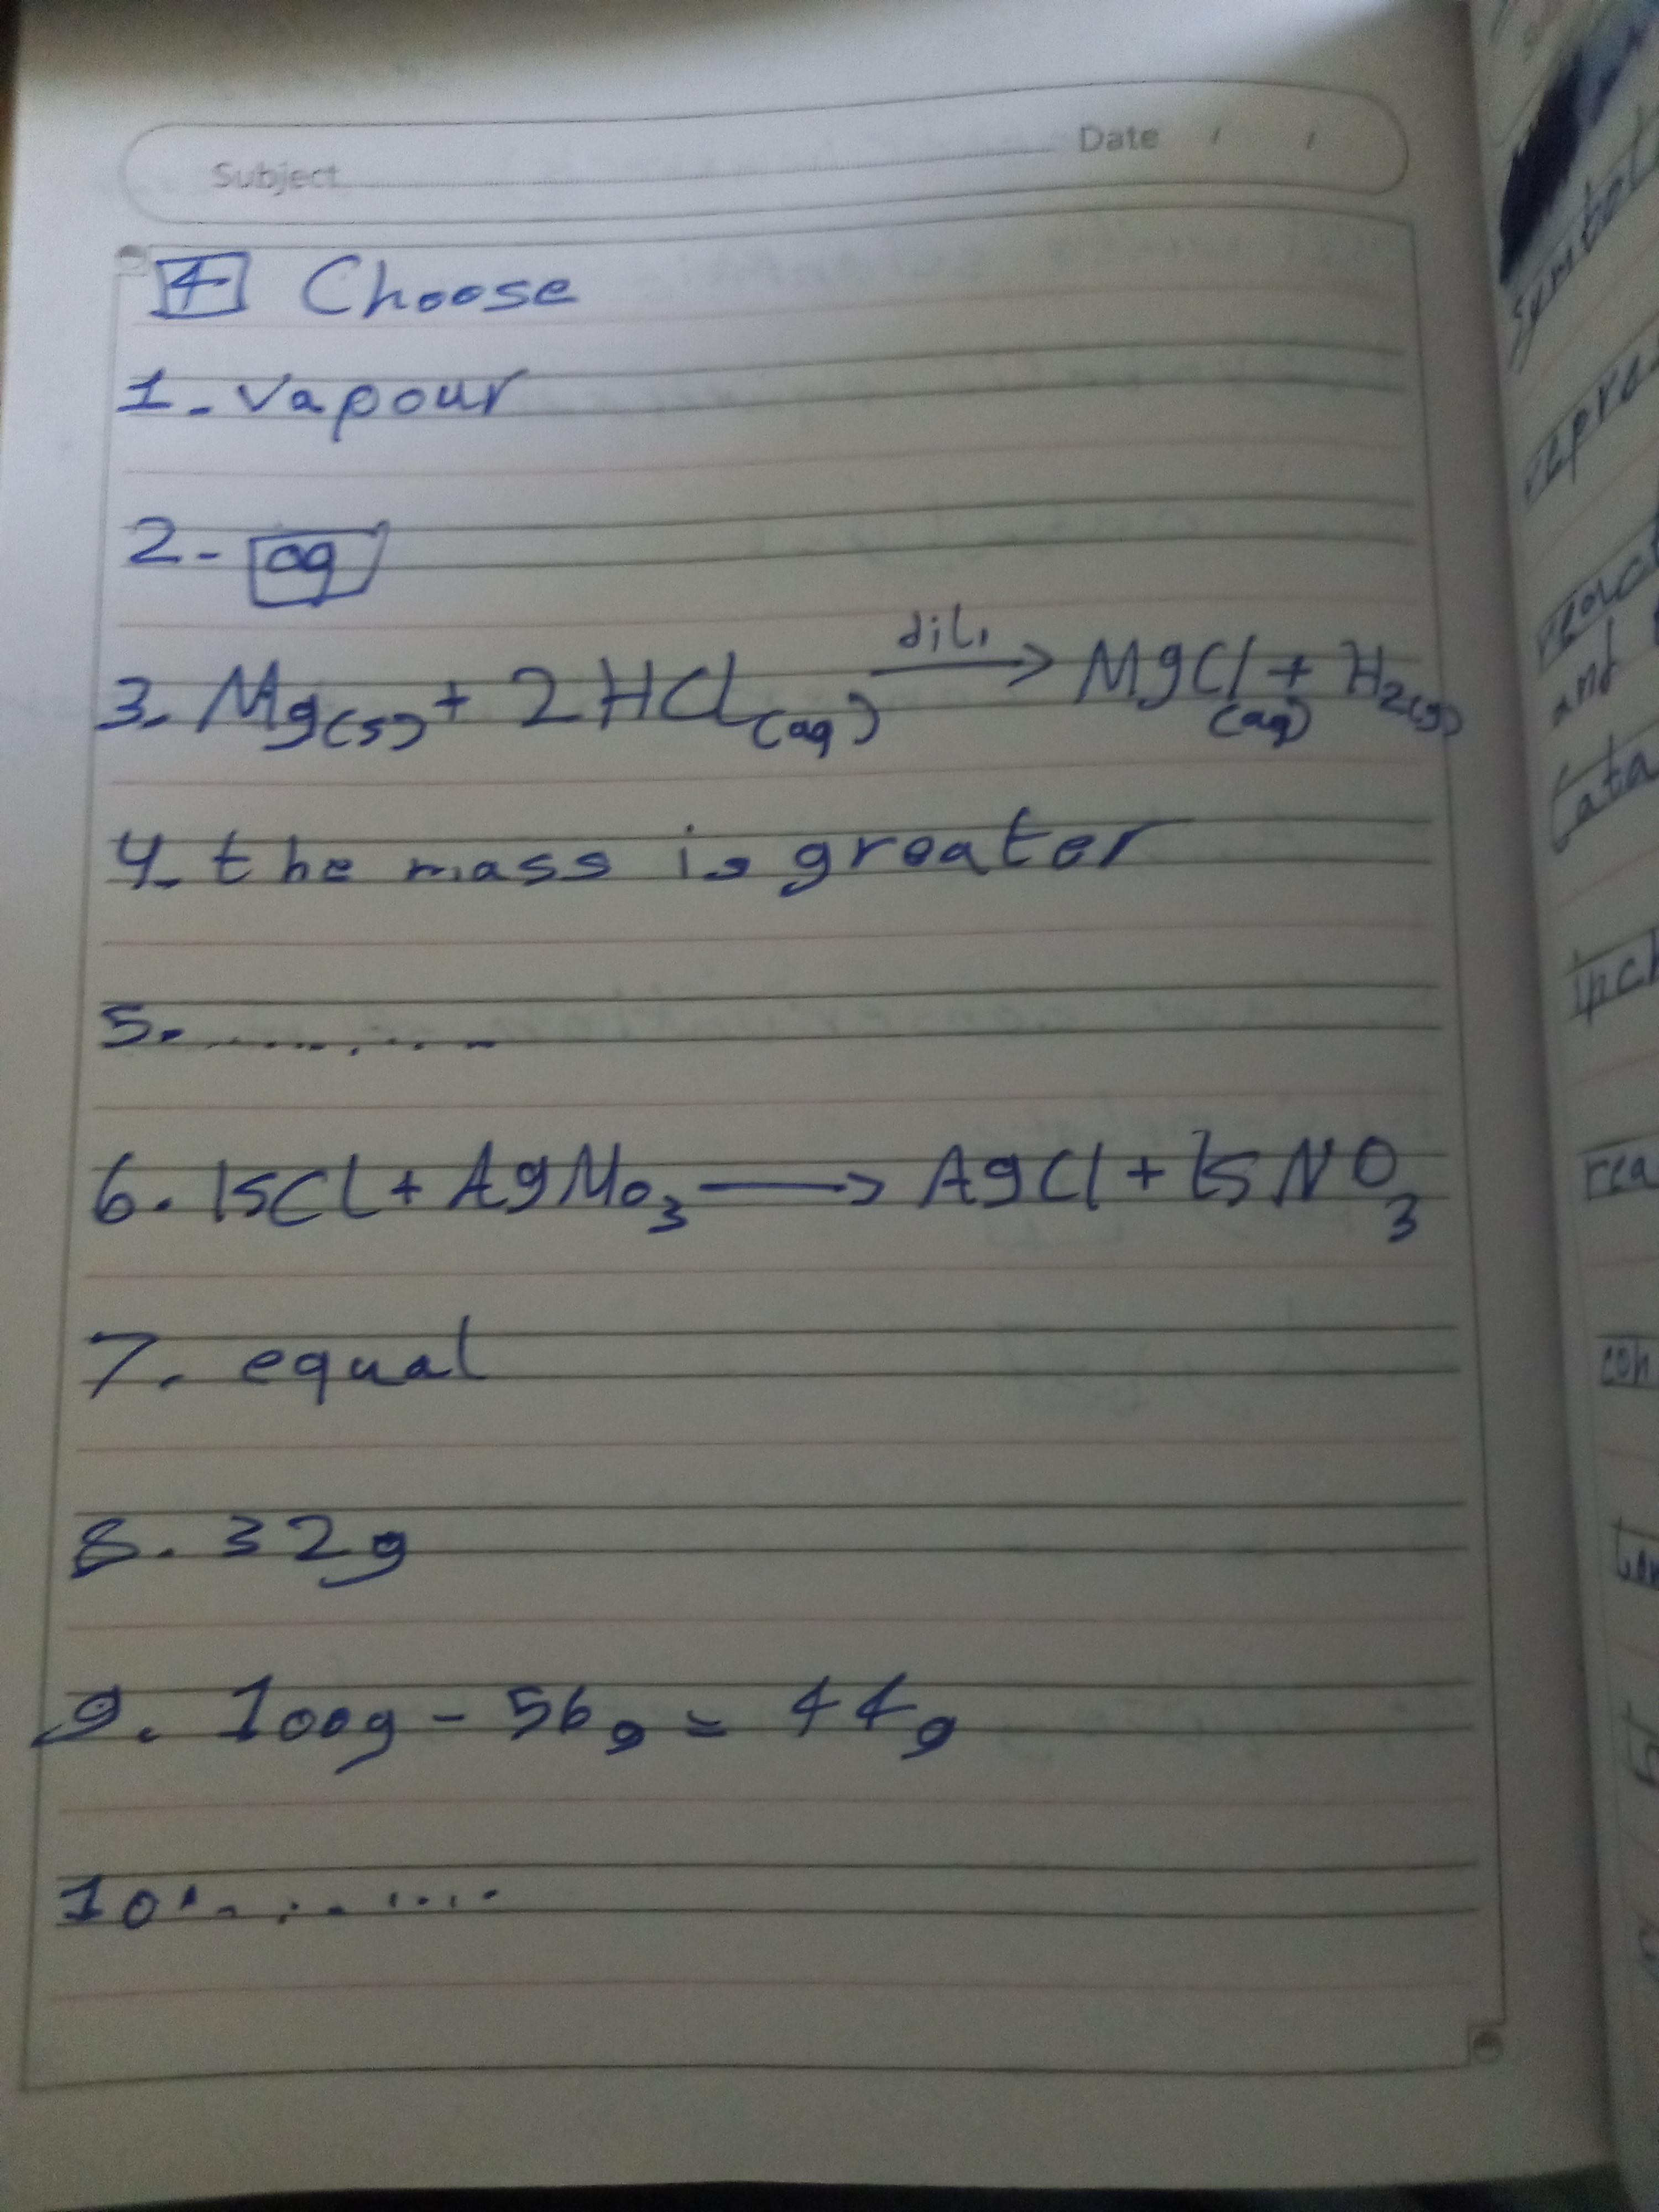 Subject Date / /
4 Choose
1. vapour
2- aq
3. Mg(s) + 2HCl(aq) dil. → MgCl(aq) + H2(g)
4. the mass is greater
5. ........
6. KCl + AgNO3 → AgCl + KNO3
7. equal
8. 32g
9. 100g - 56g = 44g
10. ........
Symbol
repre
react
and
Cata
incl
rea
con